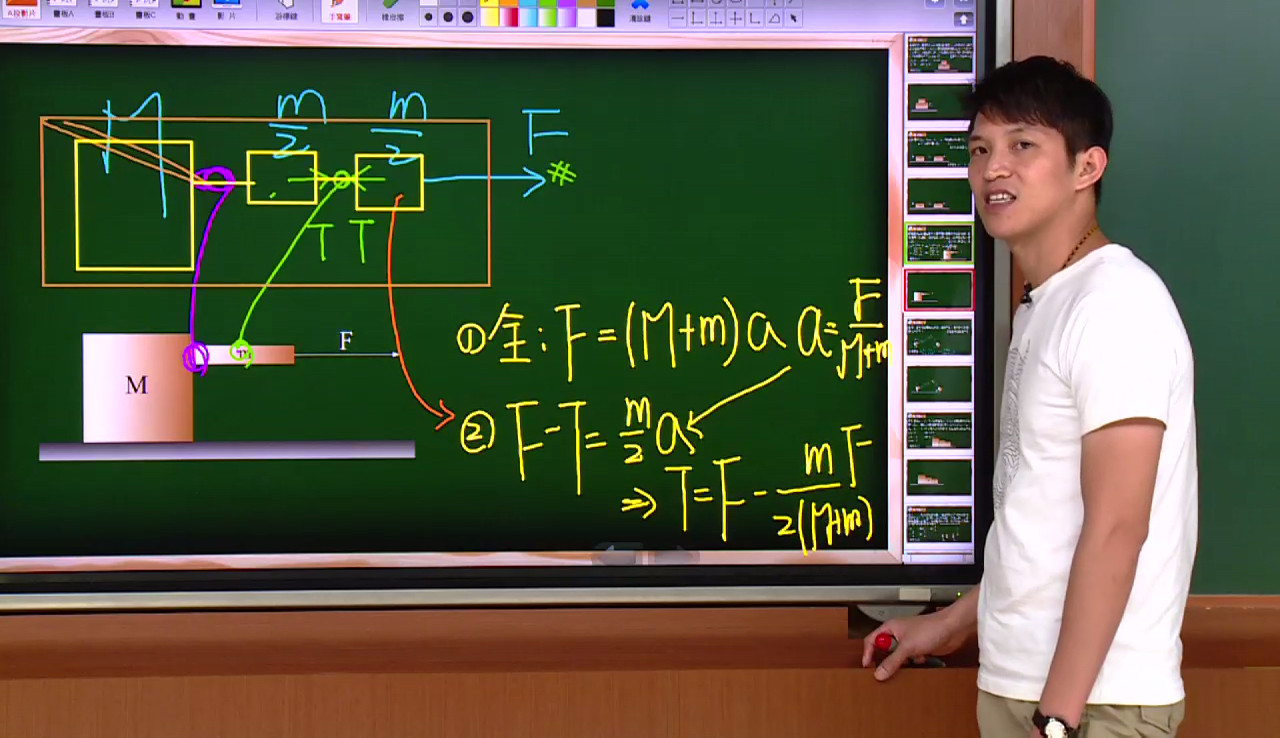 A段影片
畫板A
畫板B
畫板C
動畫
影片
M
m/2
m/2
F
T T
M
F
①全:F=(M+m)a a=F/M+m
②F-T=m/2 a
⇒T=F-mF/2(M+m)